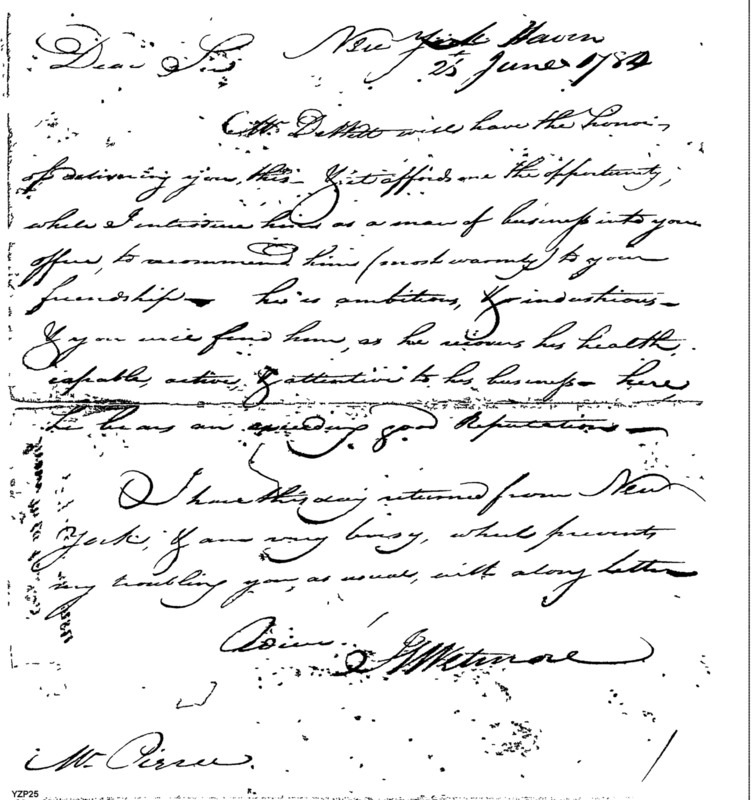 New York Haven
Dear Sir 25 June 1784
Mr. DeWitt will have the honor
of delivering you, this - & it affords me the opportunity,
while I introduce him as a man of business into your
office, to recommend him (most warmly) to your
friendship - he is ambitious, & industrious -
& you will find him, as he recovers his health,
capable, active, & attentive to his business - here
he bears an exceeding good Reputation -
I have this day returned from New
York, & am very busy, which prevents
my troubling you, as usual, with a long Letter
Adieu!
Wetmore
Mr. Pierce.
YZP25